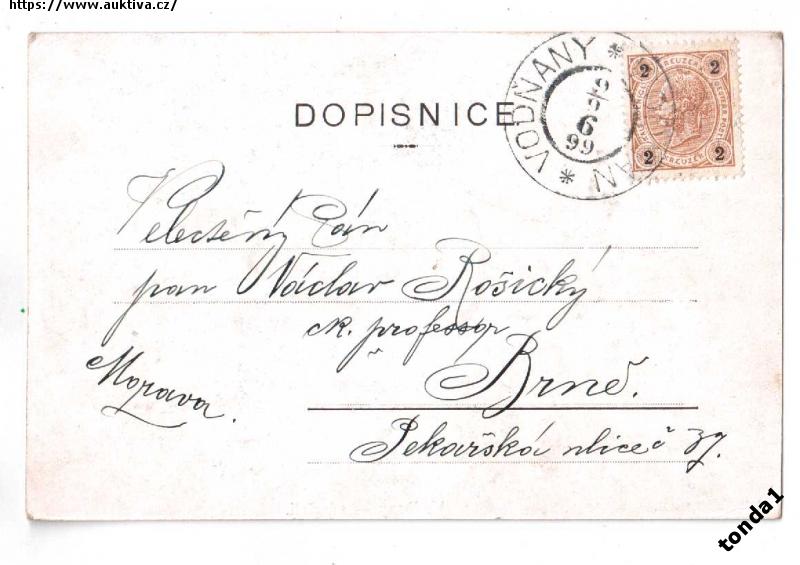 https://www.auktiva.cz/
DOPISNICE
VODŇANY * *
9 6 99
2 KREUZER 2
2 KREUZER 2
Velectěný Pán
pan Václav Rosický
ck. professor
v Brně.
Morava.
Pekařská ulice č 37.
tonda1